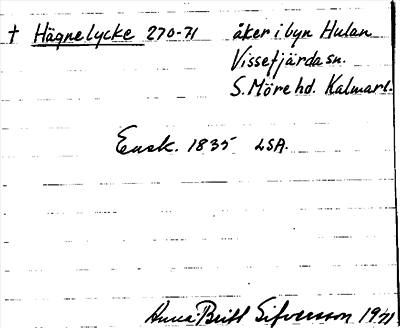 † Hägnelycke 270-71 åker i byn Hulan
Vissefjärda sn.
S. Möre hd. Kalmarl.
Ensk. 1835 LSA.
Anna-Britt Sifversson 1971